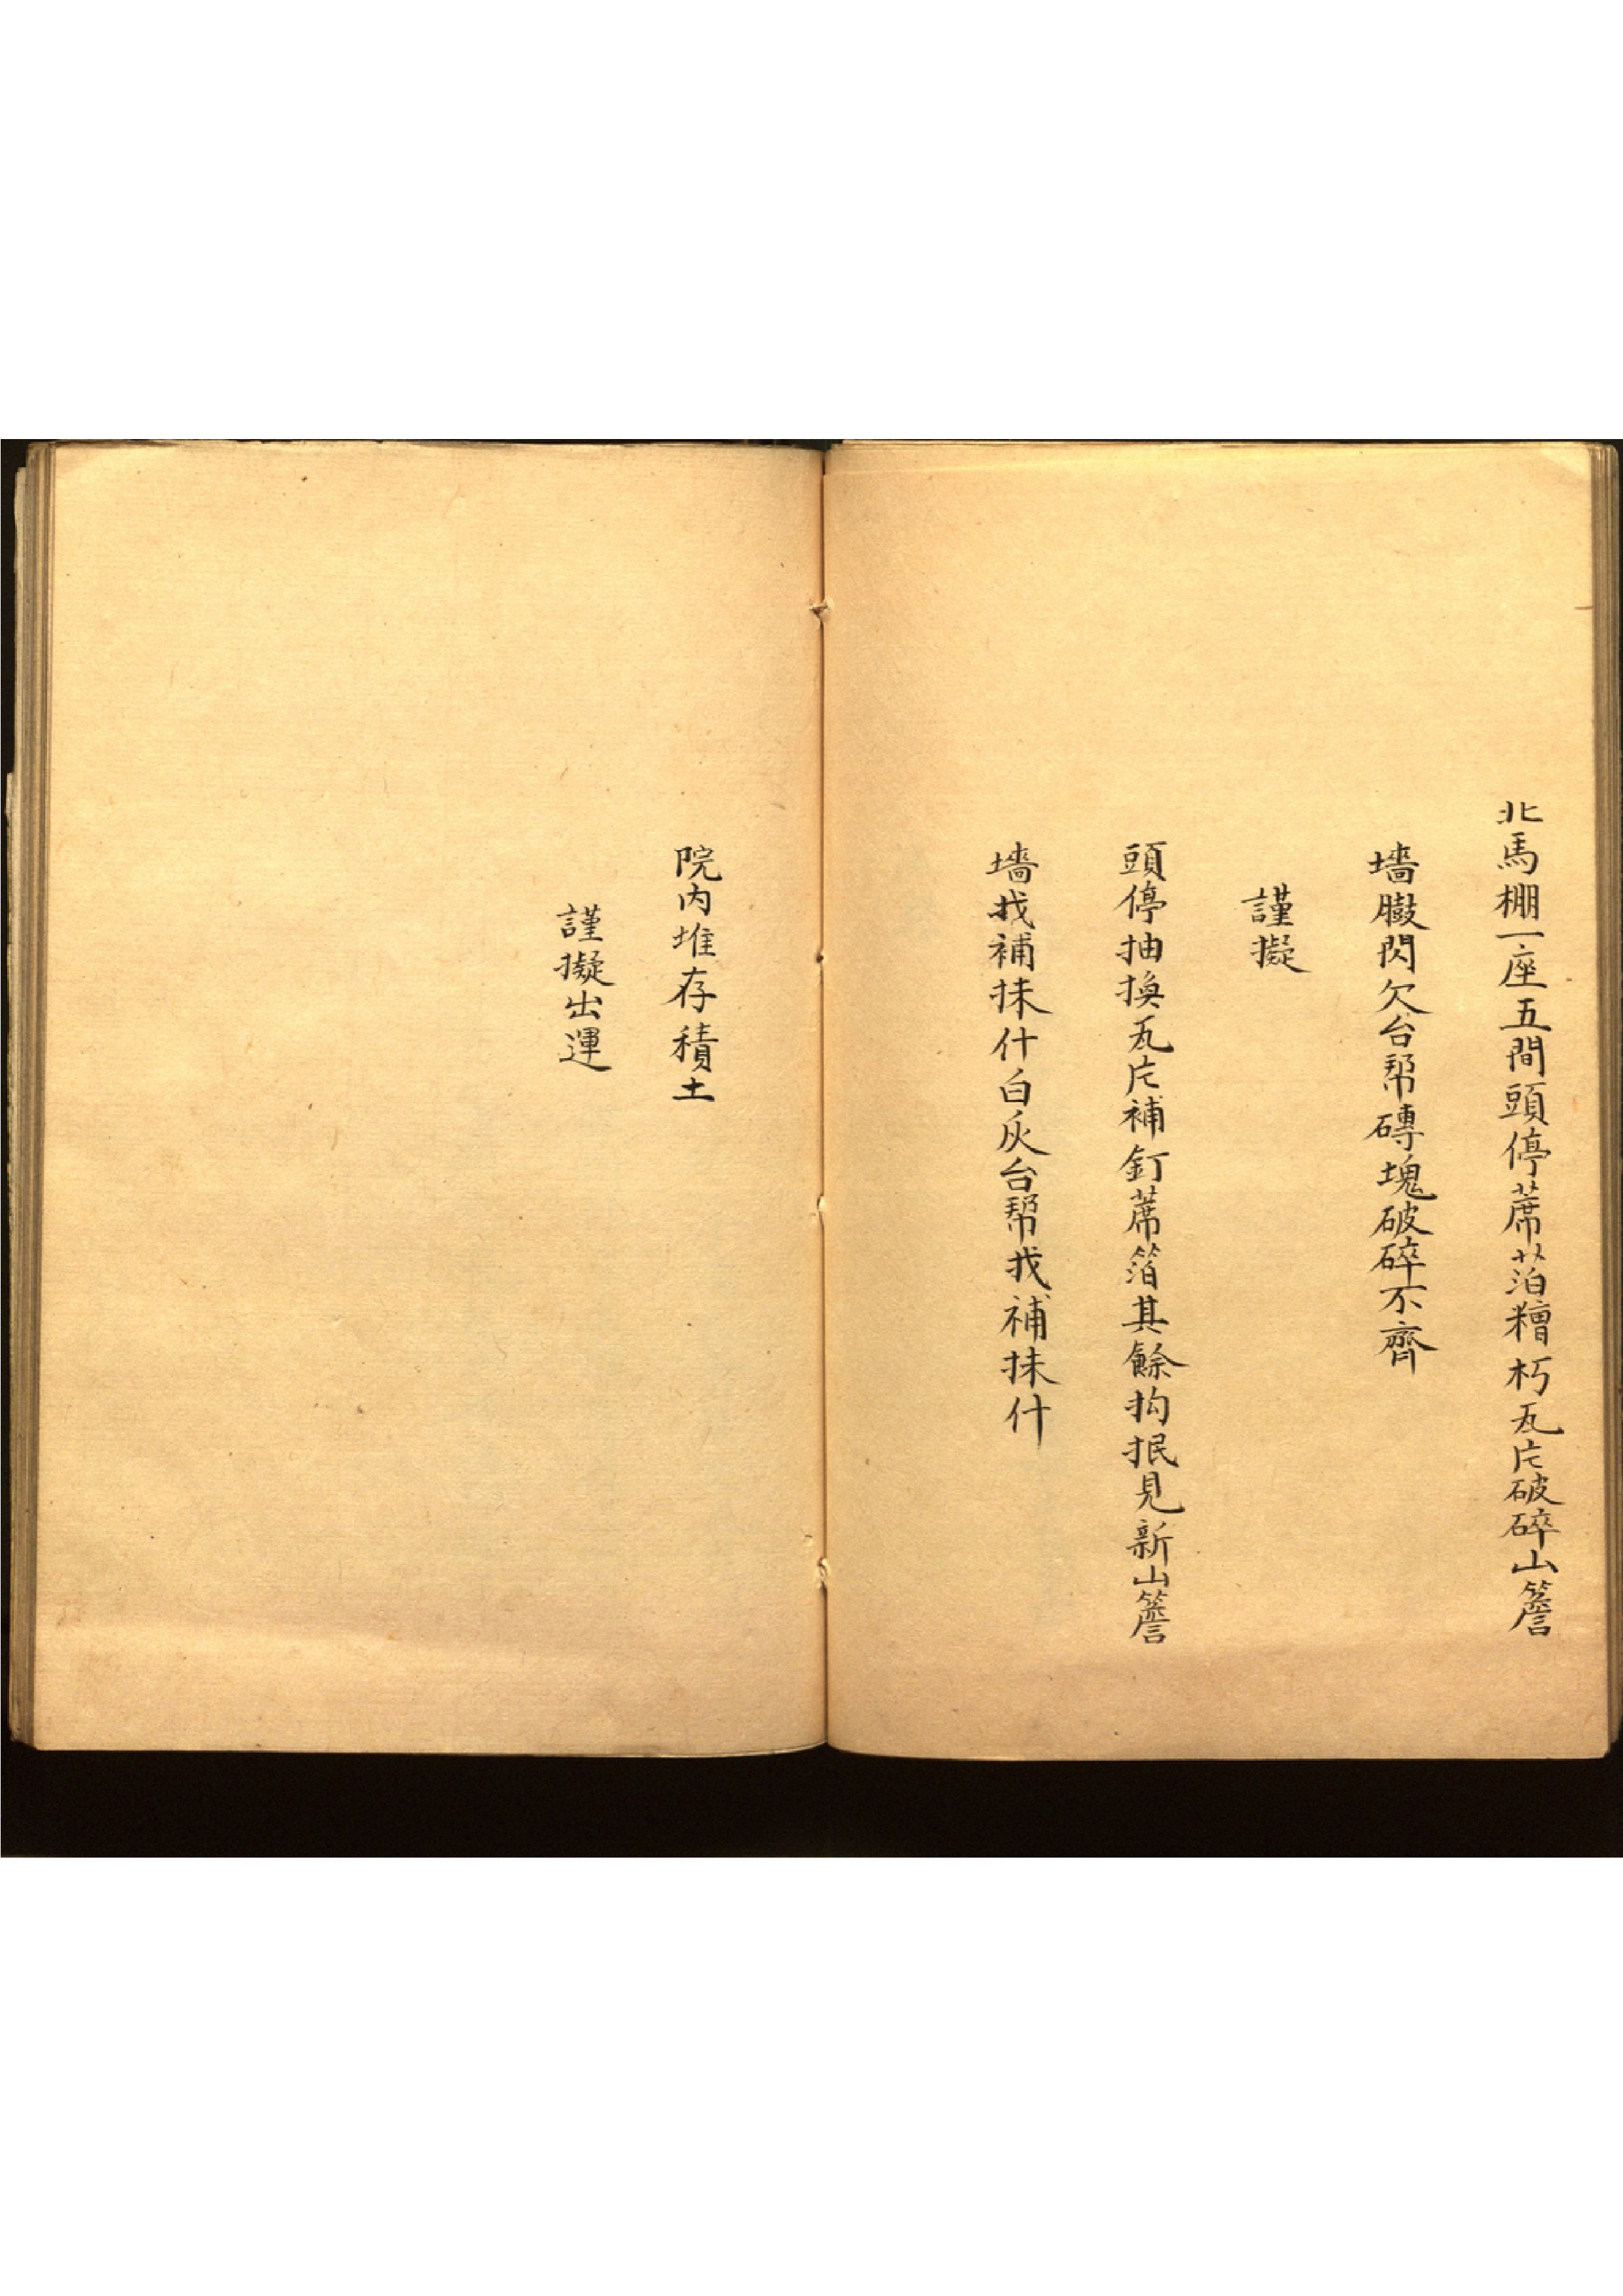 北馬棚一座五間頭停蓆萡糟朽瓦片破碎山簷
墻臌閃欠台幫磚塊破碎不齊
謹擬
頭停抽換瓦片補釘蓆箔其餘抅抿見新山簷
墻找補抹什白灰台幫找補抹什
院内堆存積土
謹擬出運